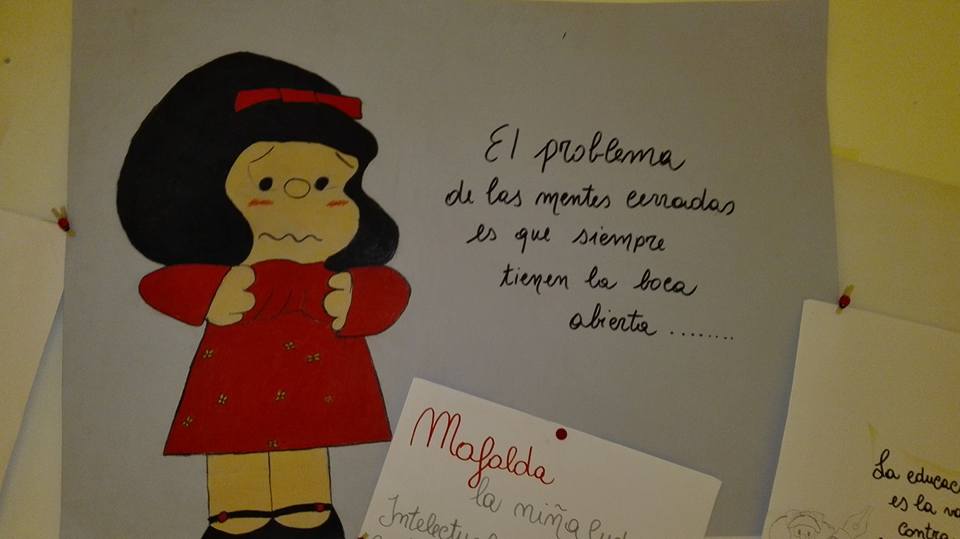 El problema
de las mentes cerradas
es que siempre
tienen la boca
abierta ........
Mafalda
la niña
La
es la
contra